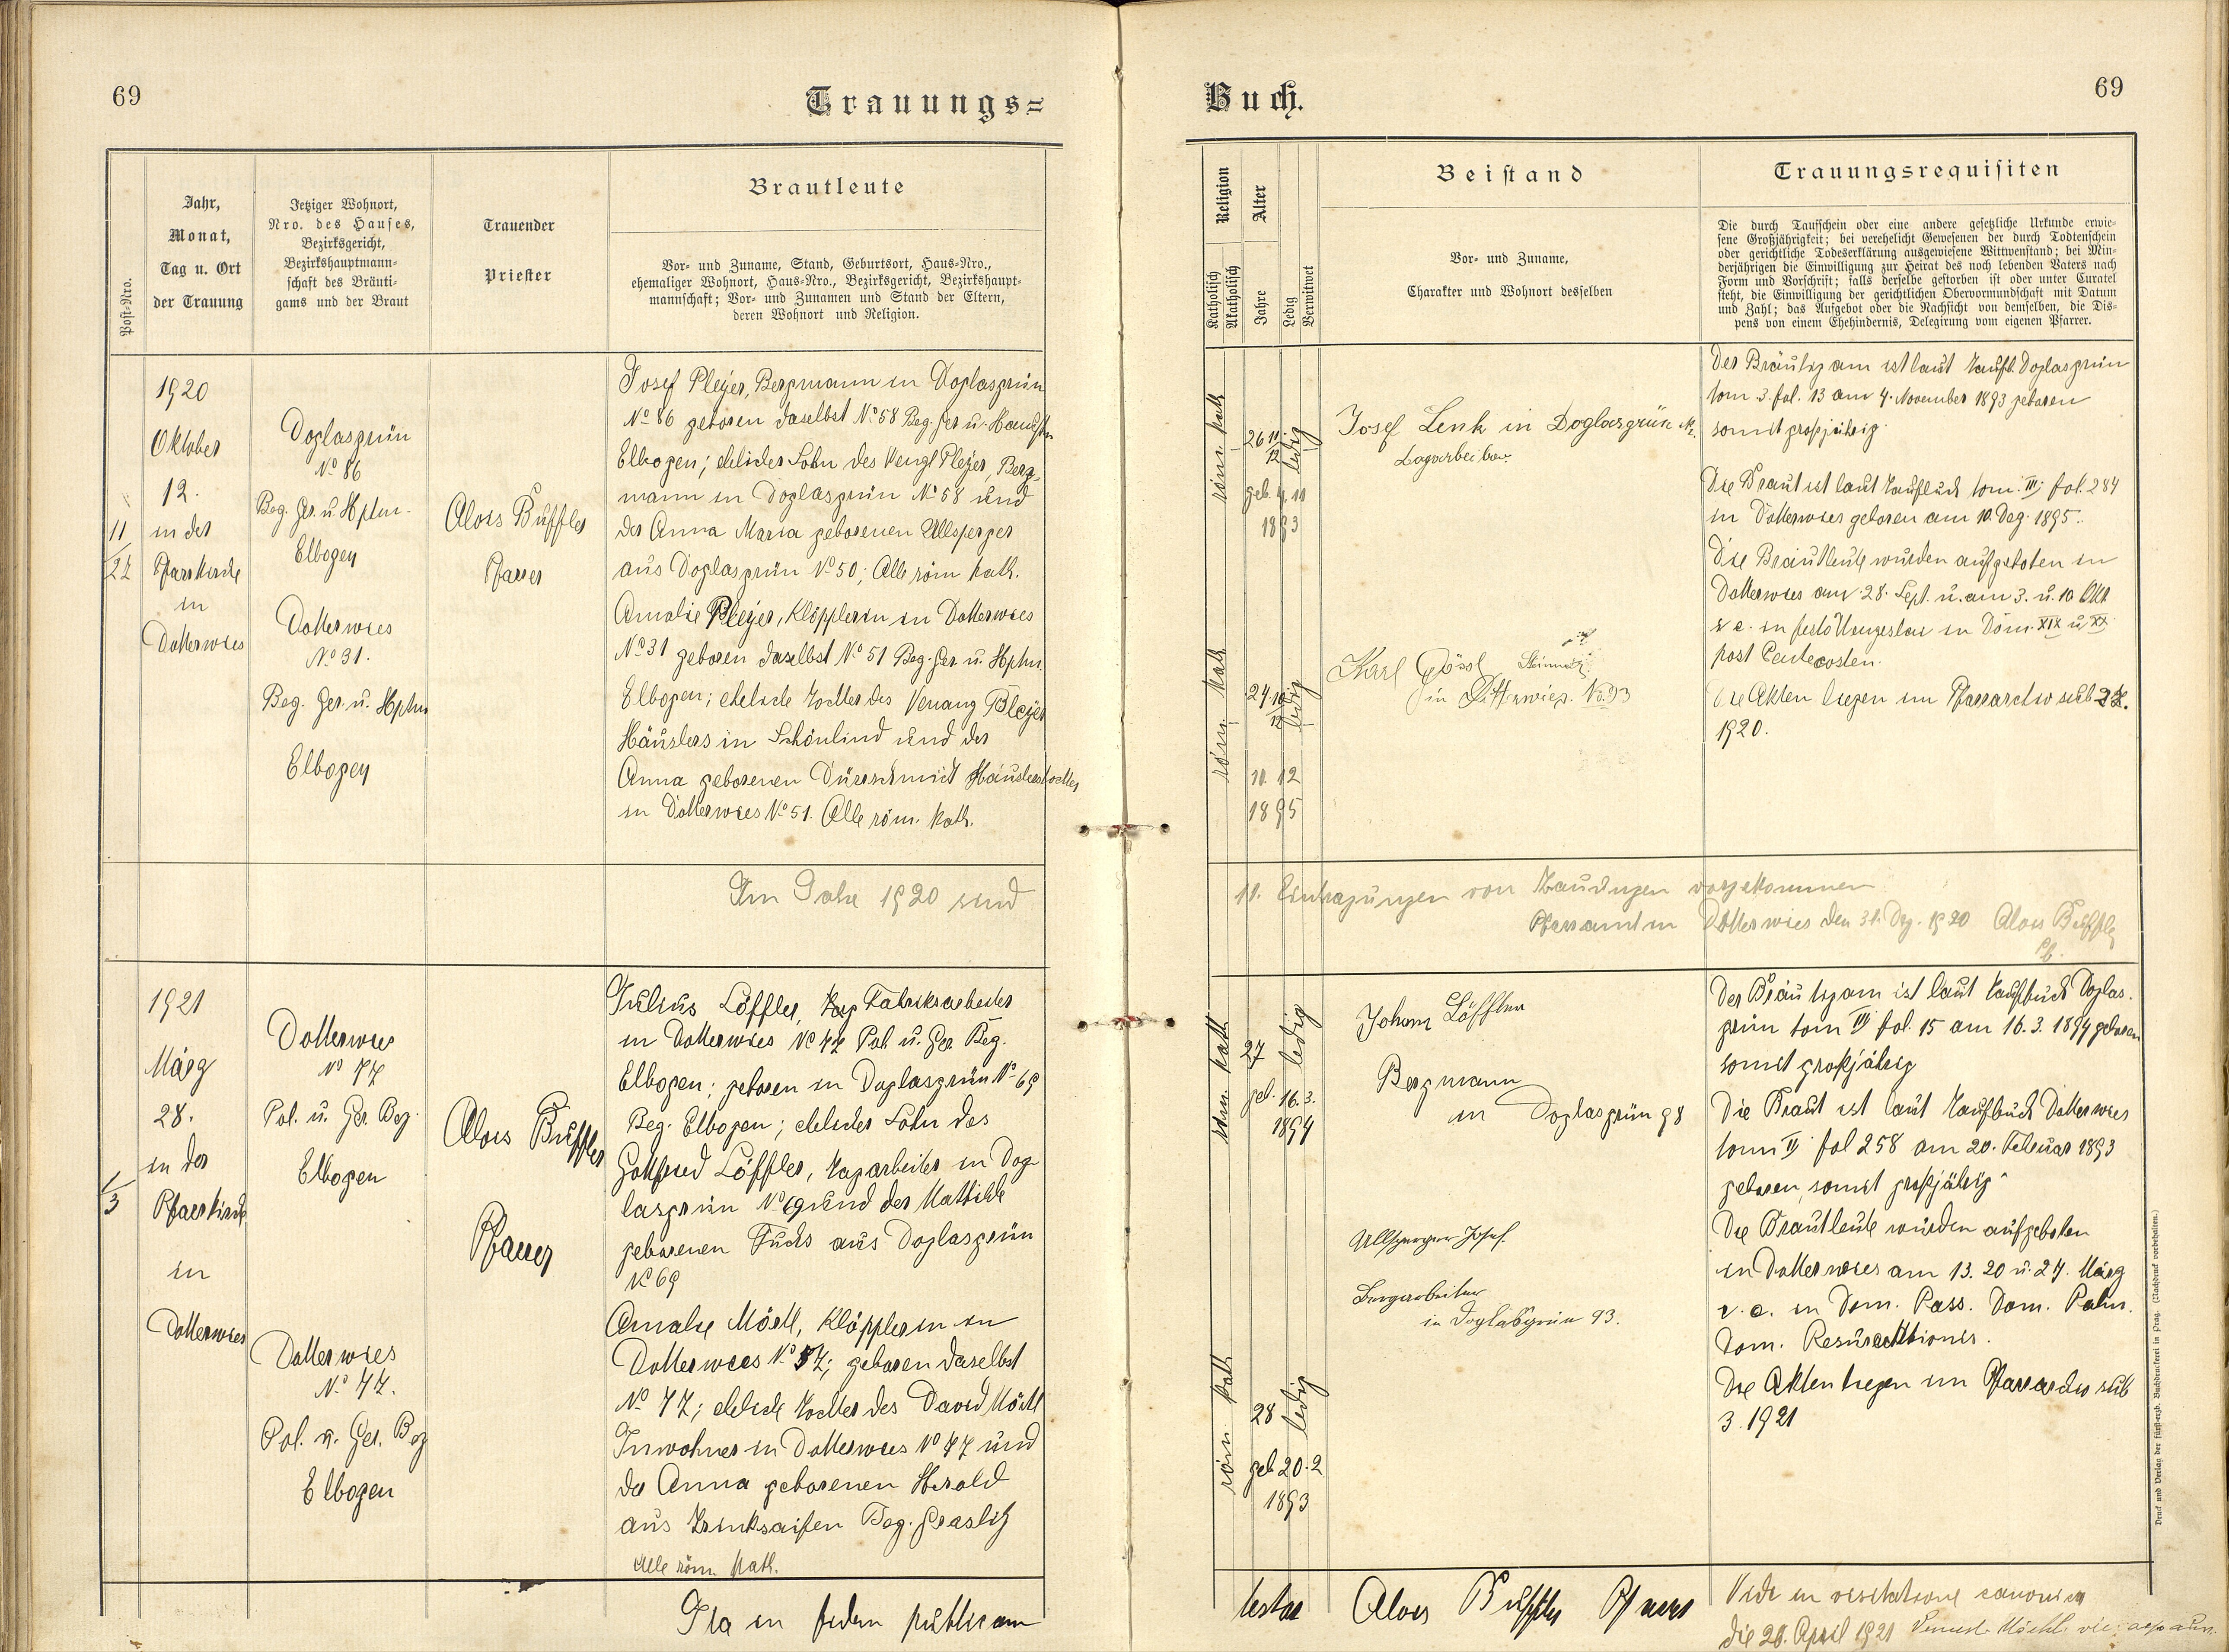 69
Trauungs=
Post-Nro.
Jahr,
Monat,
Tag u. Ort
der Trauung
Jetziger Wohnort,
Nro. des Hauses,
Bezirksgericht,
Bezirkshauptmann-
schaft des Bräuti-
gams und der Braut
Trauender
Priester
Brautleute
Vor- und Zuname, Stand, Geburtsort, Haus-Nro.,
ehemaliger Wohnort, Haus-Nro., Bezirksgericht, Bezirkshaupt-
mannschaft; Vor- und Zunamen und Stand der Eltern,
deren Wohnort und Religion.
11
1920
Oktober
12.
in der
Pfarrkirche
in
Dotterwies
Doglasgrün
No 86
Bez. Ger. u. Hptm.
Elbogen
Dotterwies
No 31.
Bez. Ger. u. Hptm
Elbogen
Alois Büffler
Pfarrer
Josef Pleÿer, Bergmann in Doglasgrün
No 86 geboren daselbst No 58 Bez. Ger u.
Elbogen; ehelicher Sohn des Wenzl Pleÿer, Berg-
mann in Doglasgrün No 58 und
der Anna Maria geborenen Ullsperger
aus Doglasgrün No 50; Alle röm kath.
Amalie Pleÿer, Klöpplerin in Dotterwies
No 31 geboren daselbst No 51 Bez. Ger u. Hptm.
Elbogen; eheliche Tochter des Bleÿer
Häuslers in Schönlind und der
Anna geborenen Dürrschmidt Häuslerstochter
in Dotterwies No 51. Alle röm. kath.
Im Jahre 1920 sind
1/3
1921
März
28.
in der
Pfarrkirche
in
Dotterwies
Dotterwies
No 77
Pol. u. Ger. Bez.
Elbogen
Dotterwies
No 77.
Pol. u. Ger. Bez
Elbogen
Alois Büffler
Pfarrer
Julius Löffler, Fabriksarbeiter
in Dotterwies No 77 Pol. u. Ger. Bez.
Elbogen; geboren in Doglasgrün No 69
Bez. Elbogen; ehelicher Sohn des
Gottfried Löffler, Tagarbeiter in Dog-
lasgrün No 69 und der Mathilde
geborenen Fuchs aus Doglasgrün
No 69
Amalie Möckl, Klöpplerin in
Dotterwies No 77; geboren daselbst
No 77; eheliche Tochter des David Möckl
Inwohner in Dotterwies No 77 und
der Anna geborenen Herold
aus Trinksaifen Bez. Graslitz
Alle röm kath.
Ita in fidem publicam
Buch.
69
Religion
Katholisch
Akatholisch
Alter
Jahre
Ledig
Verwitwet
Beistand
Vor- und Zuname,
Charakter und Wohnort desselben
Trauungsrequisiten
Die durch Taufschein oder eine andere gesetzliche Urkunde erwie-
sene Großjährigkeit; bei verehelicht Gewesenen der durch Todtenschein
oder gerichtliche Todeserklärung ausgewiesene Wittwenstand; bei Min-
derjährigen die Einwilligung zur Heirat des noch lebenden Vaters nach
Form und Vorschrift; falls derselbe gestorben ist oder unter Curatel
steht, die Einwilligung der gerichtlichen Obervormundschaft mit Datum
und Zahl; das Aufgebot oder die Nachsicht von demselben, die Dis-
pens von einem Ehehindernis, Delegirung vom eigenen Pfarrer.
röm kath
26 11/12 ledig
geb. 4. 11
1893
Josef Lenk in Doglasgrün
Tagarbeiter
röm. kath
24 10/12 ledig
10. 12
1895
Karl Gössl Steinmetz
in Dotterwies. No. 93
Der Bräutigam ist laut Taufb. Doglasgrün
tom 3. fol. 13 am 4. November 1893 geboren
somit großjährig.
Die Braut ist laut Taufbuch tom. III; fol. 284
in Dotterwies geboren am 10. Dez. 1895.
Die Brautleute wurden aufgeboten in
Dotterwies am 28. Sept. u. am 3. u. 10 Okt
v. e. in festo Wenzeslai in Dom. XIX u. XX
post Pentecosten.
Die Akten liegen im Pfarrarchiv sub
1920.
11. Eintragungen von Trauungen vorgekommen
Pfarramt in Dotterwies den 31. Dez. 1920 Alois Büffler
Pf.
röm kath
27 ledig
geb. 16. 3.
1894
Johann Löffler
Bergmann
in Doglasgrün 98
röm. kath
28 ledig
geb 20. 2
1893
Ullsperger Josef.
Bergarbeiter
in Doglasgrün 93.
Der Bräutigam ist laut Taufbuch Doglas-
grün tom III fol. 15 am 16. 3. 1894 geboren
somit großjährig
Die Braut ist laut Taufbuch Dotterwies
tom II fol 258 am 20. Februar 1893
geboren, somit großjährig.
Die Brautleute wurden aufgeboten
in Dotterwies am 13. 20 u. 27. März
v. e. in Dom. Pass. Dom. Palm.
Dom. Resurecttionis.
Die Akten liegen im Pfarrarchiv sub
3. 1921
testor Alois Büffler Pfarrer
Vidi in visitatione canonica
die 20. April 1921
Druck und Verlag der fürst-erzb. Buchdruckerei in Prag. (Nachdruck vorbehalten.)